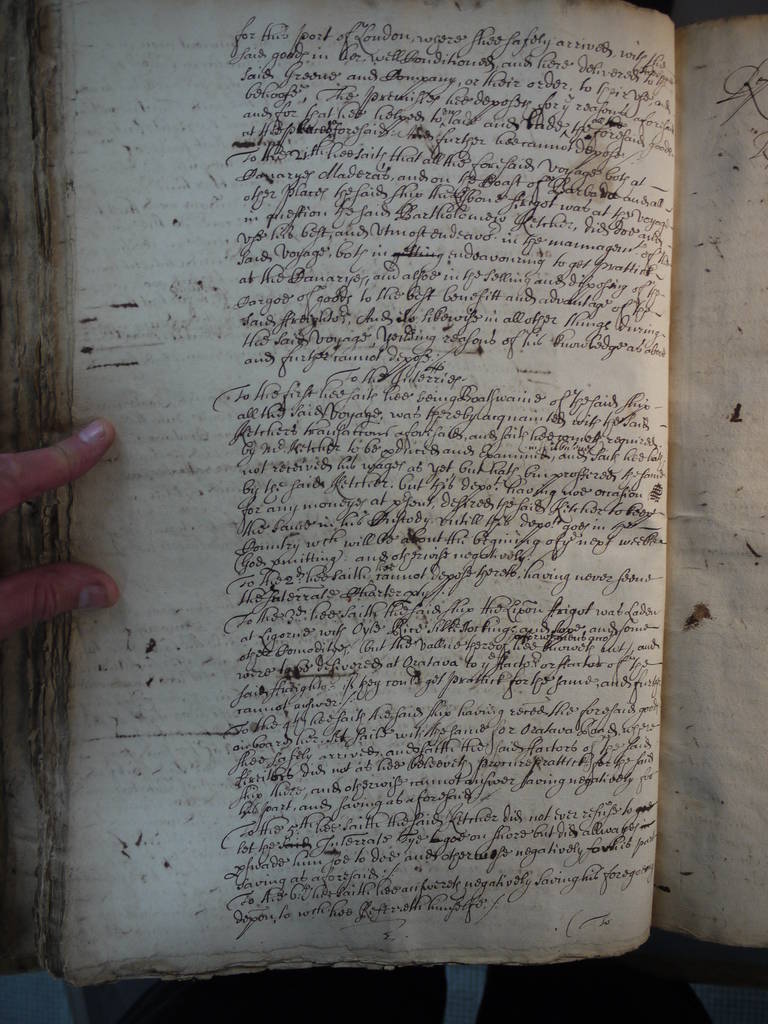 for this port of London, where shee safely arrived, with the
said goods in her, well Conditioned, and here delivered to the
said Greene and Company, or their order, to their use and
behoofe. The premisses hee deposeth for the reasons aforesaid
and for that hee helped to lade and the foresaid goods
at the foresaid. further hee cannot depose./
To the hee saith that all the foresaid voyage both at
Canaryes Maderas, and on the Coast of Barbarie and all
other places the said ship the Lisbone frigot was at the voyage
in question the said Bartholomew Ketcher, did doe and
use his best, and utmost endeavor in the mannagemt of the
said voyage, both in endeavouring to get prattick
at the Canaryes, and alsoe in the selling and disposing of the
Cargoe of goods to the best benefitt and advantage of the
said freightors. And likewise in all other things during
the said voyage, yeilding reasons of his knowledge as above
and further cannot depose./
To the Interries.
To the first hee saith hee being Boatswaine of the said ship
all the said voyage, was thereby acquainted with the said
Ketchers transactions aforesaid, and saith hee required
by Mr Ketcher to be produced and Examined, and saith hee hath
not received his wages as yet but hath bin proffered the same
by the said Ketcher. but this depot having noe occasion
for any moneyes at present, desired the said Ketcher to keep
the same in his Custody untill this depot goes in the
Country wch will be about the begining of ye next weeke
(God permitting) and otherwise negatively./
To the 2d hee saith hee cannot depose thereto, having never seene
the Interrate Charter party./
To the 3d hee saith the said ship the Lisbon frigot was laden
at Ligorne with Oyle Rice Silk Stockings and sope, and some
other Comodities, (but the vallue thereof hee knoweth not), and
were to be delivered at Oratava to ye factor or factors of the
said freightors if they could get prattick for the same, and further
cannot answer./
To the 4th hee saith the said ship having reced the foresaid goods
on board her, set saile with the same for Oratava Road, where
shee safely arrived, and saith the said factors of the said
freitors did not as hee beleeveth procure prattick for the said
ship there, and otherwise cannot answer saving negatively for
his part, and saving as aforesaid./
To the 5th hee saith the said Ketcher did not ever refuse to
let the Interrate goe on shore but did allwayes
perswade him soe to doe and otherwise negatively for his part
saving as aforesaid./
To the 6th hee saith hee answereth negatively saving his foregoeing
depon, to wch hee Referreth himselfe./
(To